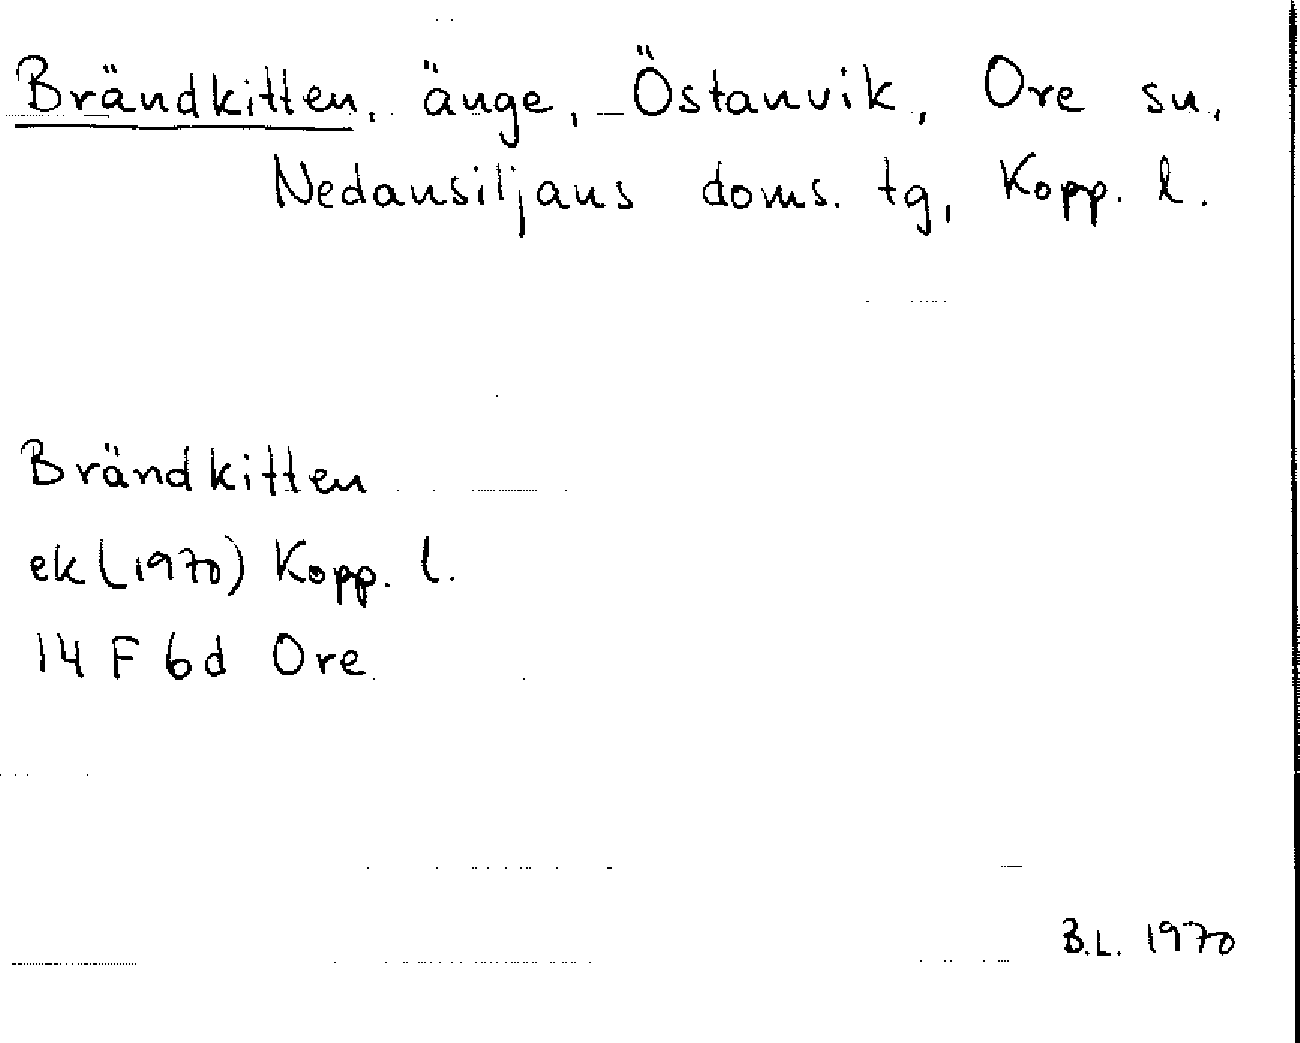 Brändkitten, änge, Östanvik, Ore sn,
Nedansiljans doms. tg, Kopp. l.
Brändkitten
ek (1970) Kopp. l.
14 F 6d Ore
B.L. 1970